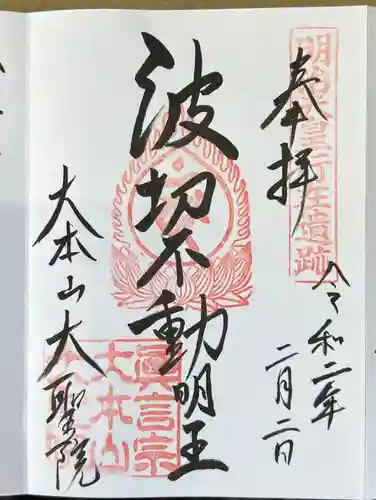 奉拝
明治天皇行在遺跡
令和二年
二月二日
波切不動明王
大本山大聖院
眞言宗
大本山